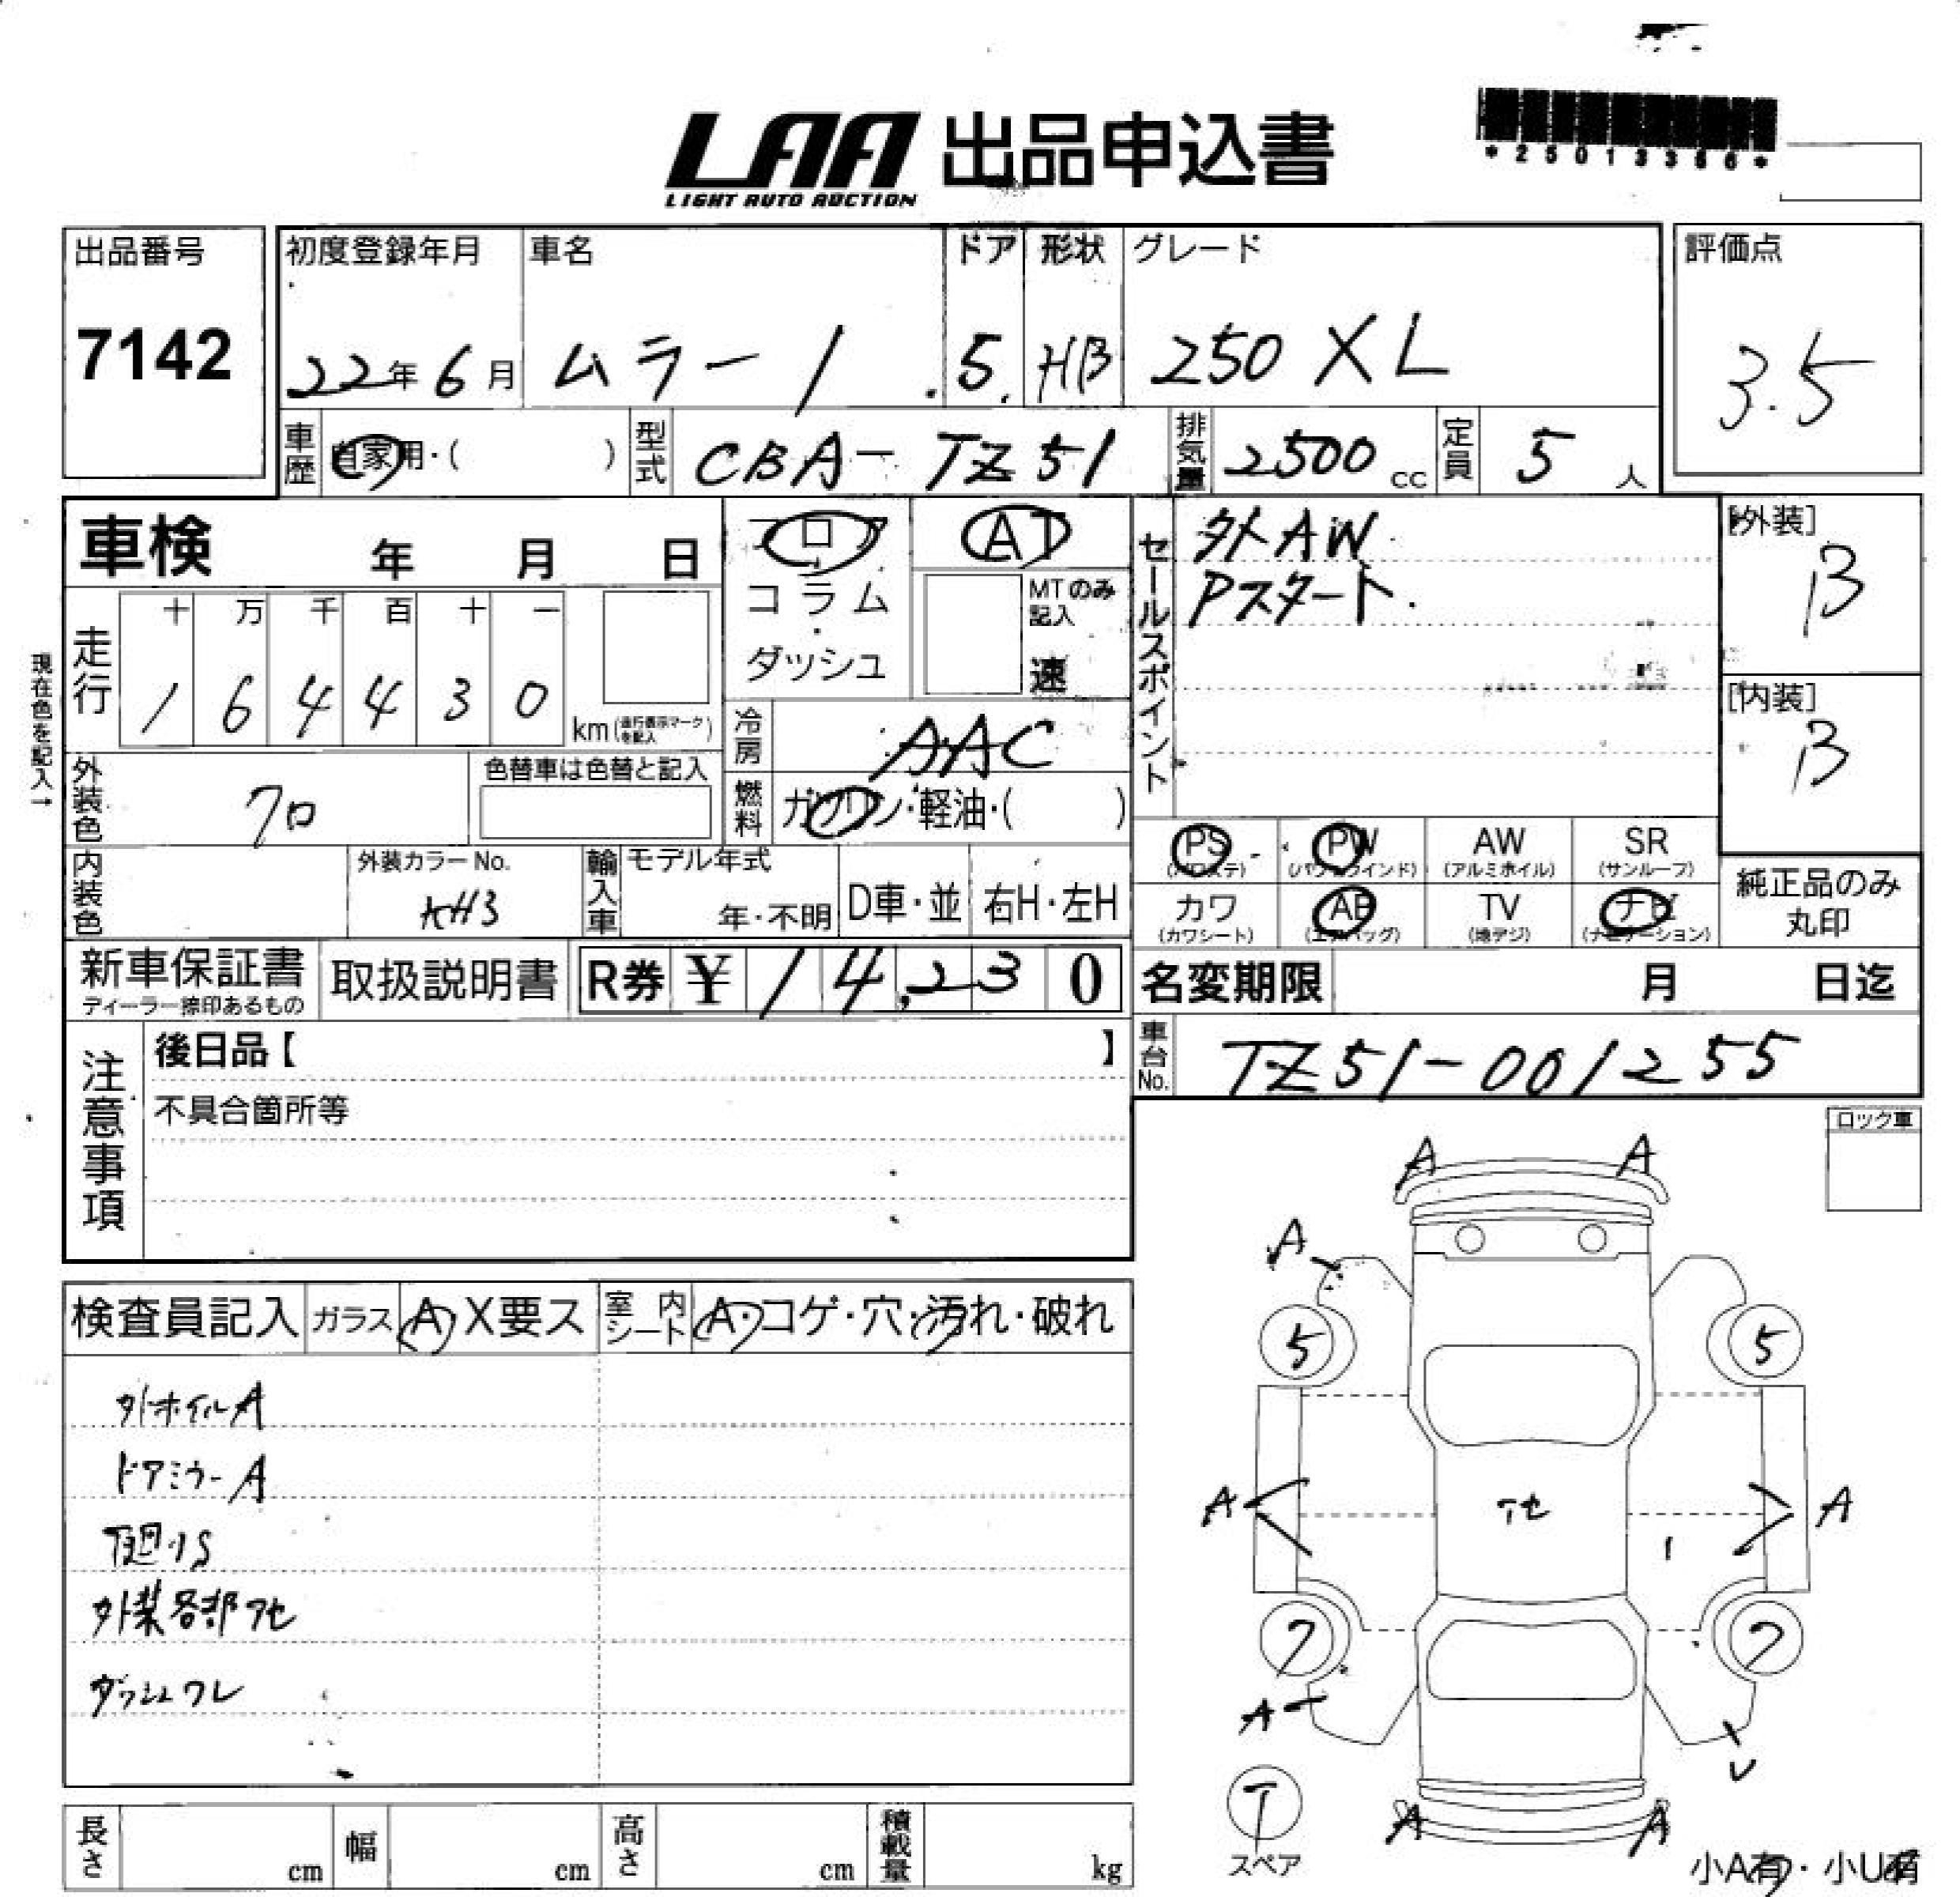 LAA 出品申込書
LIGHT AUTO AUCTION
*25013386*
出品番号
7142
初度登録年月 車名 ドア 形状 グレード 評価点
22年 6月 ムラーノ 5 HB 250 XL 3.5
車歴 自家用・( ) 型式 CBA-TZ51 排気量 2500 cc 定員 5 人
車検 年 月 日
フロア
・
コラム
・
ダッシュ
AT
MTのみ
記入
速
セールスポイント
外AW
Pスタート
[外装]
B
[内装]
B
現在色を記入→
走行 十 万 千 百 十 一
1 6 4 4 3 0 km (走行表示マークを記入)
冷房 AAC
外装色 クロ 色替車は色替と記入
燃料 ガソリン・軽油・( )
PS (パワステ) PW (パワーウインド) AW (アルミホイル) SR (サンルーフ)
カワ (カワシート) AB (エアバッグ) TV (地デジ) ナビ (ナビゲーション)
純正品のみ
丸印
内装色 外装カラーNo. KH3 輸入車 モデル年式 年・不明 D車・並 右H・左H
新車保証書 取扱説明書 R券 ¥ 1 4,2 3 0
ディーラー捺印あるもの
名変期限 月 日迄
車台No. TZ51-001255
注意事項
後日品【 】
不具合箇所等
ロック車
検査員記入 ガラス A X要ス 室内シート A・コゲ・穴・汚れ・破れ
外ホイルA
ドアミラーA
下廻りS
外装各部アセ
ダッシュワレ
A A
A
5 5
A アセ A
7 7
A
U
A A
T
スペア
小A有・小U有
長さ cm 幅 cm 高さ cm 積載量 kg